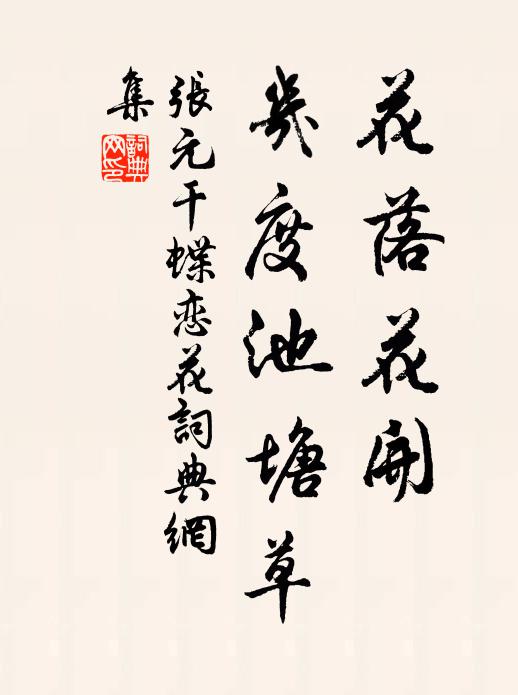 花落花開
幾度池塘草
張元干蝶恋花詞典網
集
詞典
网印